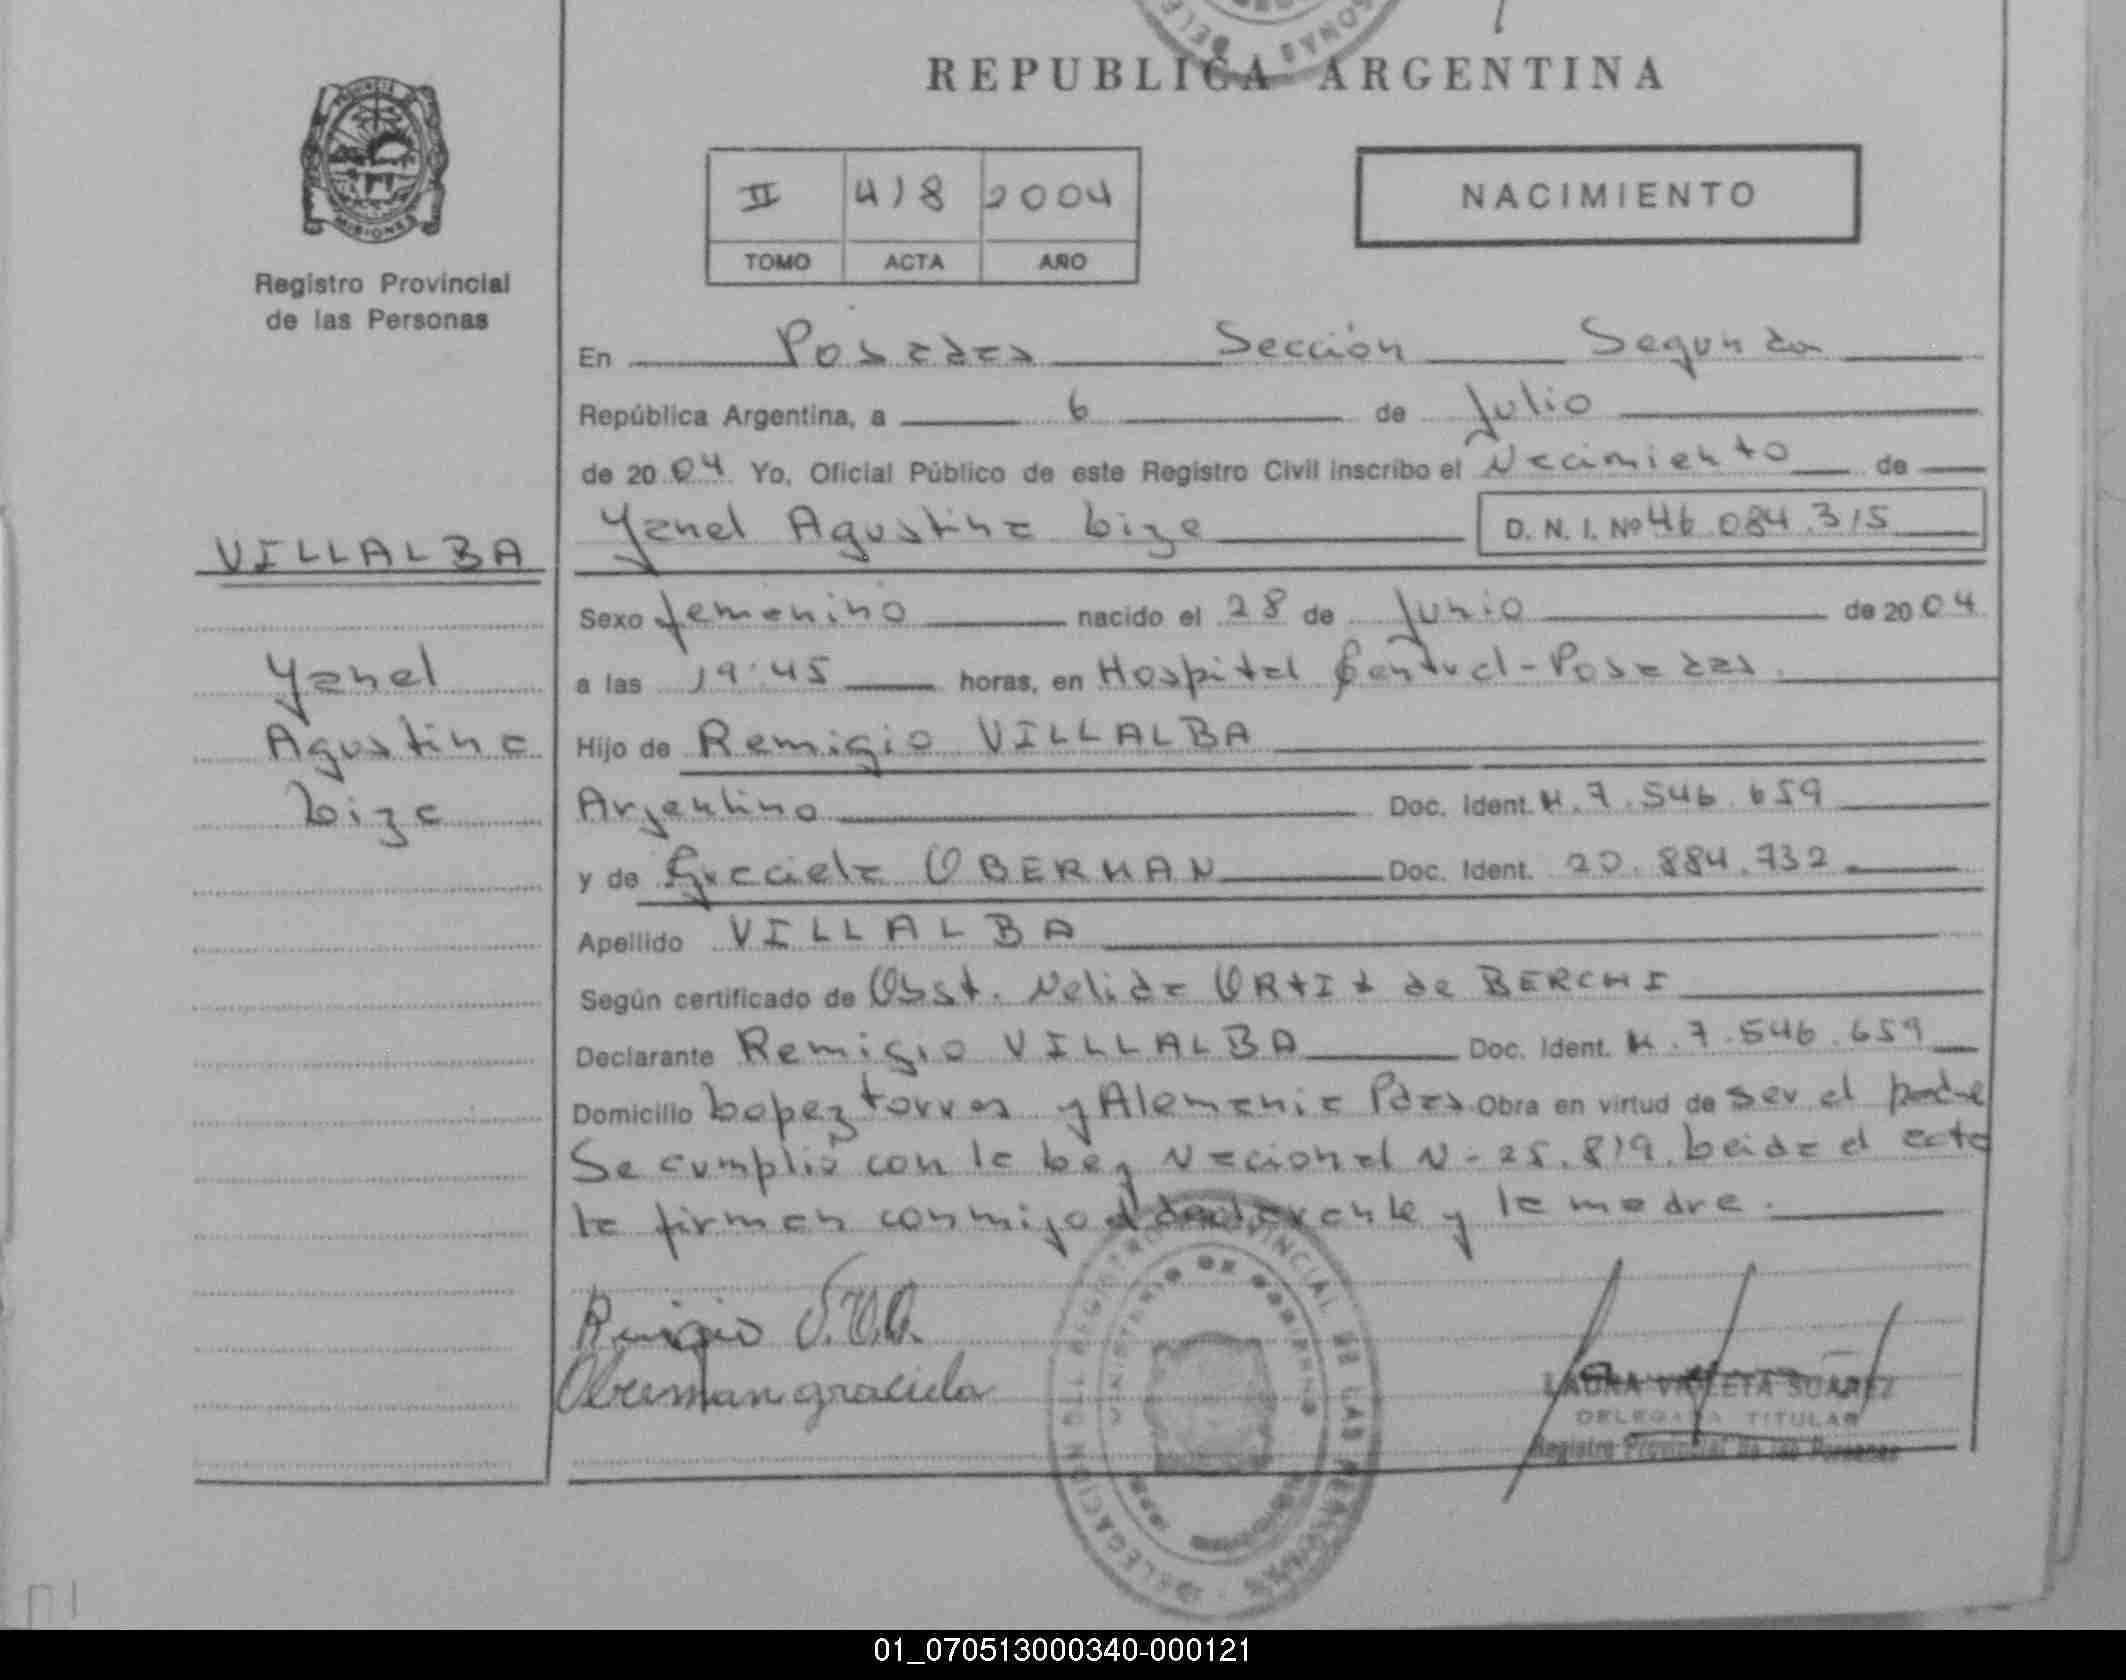 REPUBLICA ARGENTINA
PROVINCIA DE
MISIONES
Registro Provincial
de las Personas
II 418 2004
TOMO ACTA AÑO
NACIMIENTO
En Posadas Sección Segunda
República Argentina, a 6 de Julio
de 2004 Yo, Oficial Público de este Registro Civil inscribo el Nacimiento de
VILLALBA
Yanel Agustina Liza D. N. I. Nº 46.084.315
Sexo femenino nacido el 28 de Junio de 2004
Yanel
a las 19:45 horas, en Hospital Central - Posadas.
Agustina
Hijo de Remigio VILLALBA
Liza
Argentino Doc. Ident. M. 7.546.659
y de Graciela OBERMAN Doc. Ident. 20.884.732
Apellido VILLALBA
Según certificado de Obst. Nelida ORtIt de BERCHI
Declarante Remigio VILLALBA Doc. Ident. M. 7.546.659
Domicilio Lopez torres y Alemania Pdas Obra en virtud de ser el padre
Se cumplió con la Ley Nacional N- 25.819. Leida el acta
la firman conmigo el declarante y la madre.
Remigio S.V.A.
Oberman graciela
DELEGACION REGISTRO PROVINCIAL DE LAS PERSONAS
MINISTERIO DE GOBIERNO
LAURA VIOLETA SUAREZ
DELEGADA TITULAR
Registro Provincial de las Personas
01_070513000340-000121